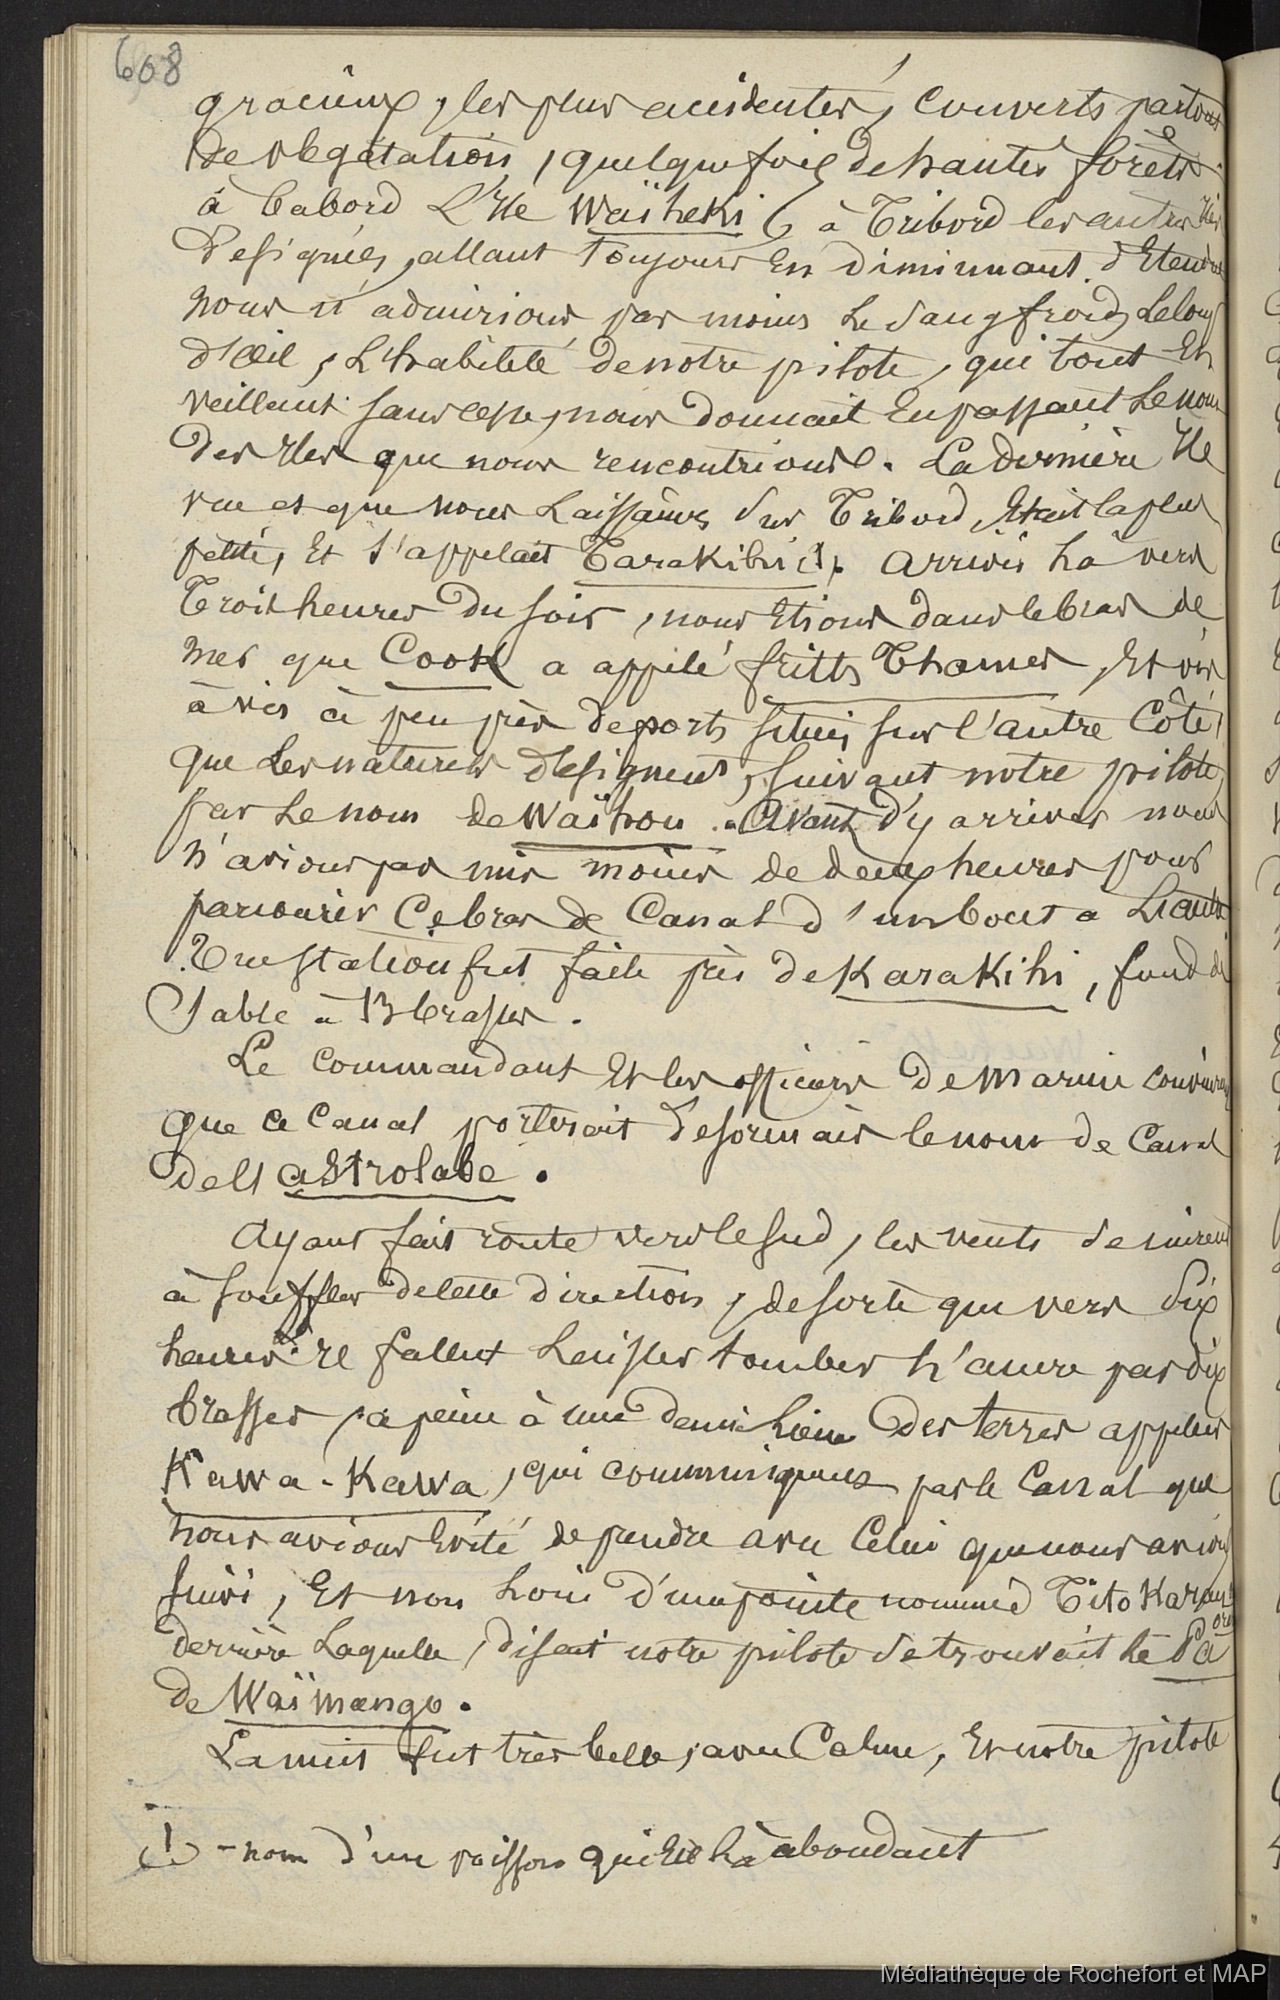 608
gracieux, les plus accidentés, couverts partout
de végétation, quelquefois de hautes forêts.
à babord L'Ile Waïheki, à Tribord les autres Iles
Designées, allant toujours En diminuant d'Etendue
nous n'admirions pas moins le sang froid, le coup
d'œil, L'habileté de notre pilote, qui tout En
veillant sans cesse, nous donnait En passant le nom
des Iles que nous rencontrions. La dernière Ile
vue et que nous Laissâmes sur Tribord, Etait la plus
petite, Et s'appelait Tarakihi (1). Arrivés là vers
Trois heures du soir, nous Etions dans le bras de
mer que Cook a appelé fritts Thames, Et vis
à vis à peu près de ports situés sur l'autre Côté,
que les naturels désignent, suivant notre pilote,
par le nom de Waïhou. Avant d'y arriver nous
n'avions pas mis moins de deux heures pour
parcourir Ce bras de Canal d'un bout a L'autre
Une station fut faite près de Karakihi, fond de
Sable à 13 brasses.
Le commandant Et les officiers De marine convinrent
que ce Canal porterait désormais le nom de Canal
de l'astrolabe.
Ayant fait route vers le sud, les vents se mirent
à souffler de cette direction, de sorte que vers Six
heures Il fallut Laisser tomber L'ancre par dix
brasses, à peine à une demi Lieue des terres appelées
Kawa-Kawa, qui communiquent par le Canal que
nous avions Evité de prendre avec Celui que nous avions
suivi, Et non Loin d'une pointe nommée Tito
derrière Laquelle, disait notre pilote se trouvait le Pa
de Waïmango.
La nuit fut très belle, avec Calme, Et notre pilote
(1) - nom d'un poisson qui Est là abondant
Médiathèque de Rochefort et MAP